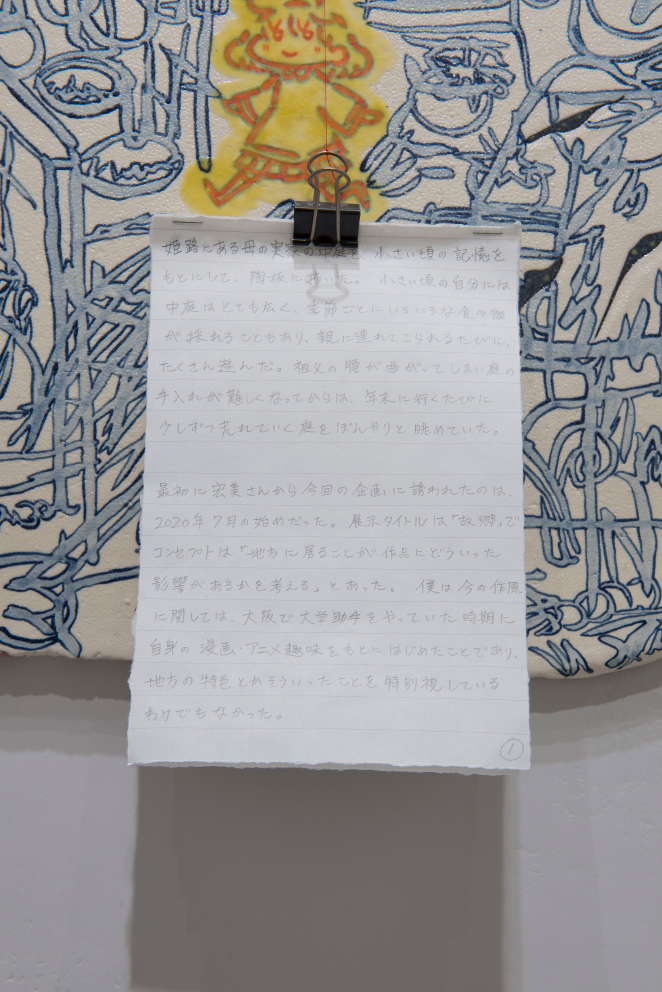 姫路にある母の実家の中庭を、小さい頃の記憶を
もとにして、陶板に描いた。 小さい頃の自分には
中庭はとても広く、季節ごとにいろいろな食べ物
が採れることもあり、親に連れてこられるたびに、
たくさん遊んだ。祖父の腰が曲がってしまい庭の
手入れが難しくなってからは、年末に行くたびに
少しずつ荒れていく庭をぼんやりと眺めていた。
最初に宏美さんから今回の企画に誘われたのは、
2020年7月の始めだった。展示タイトルは「故郷」で
コンセプトは「地方に居ることが作品にどういった
影響があるかを考える」とあった。 僕は今の作風
に関しては、大阪で大学助手をやっていた時期に
自身の漫画・アニメ趣味をもとにはじめたことであり、
地方の特色とかそういったことを特別視している
わけでもなかった。
1